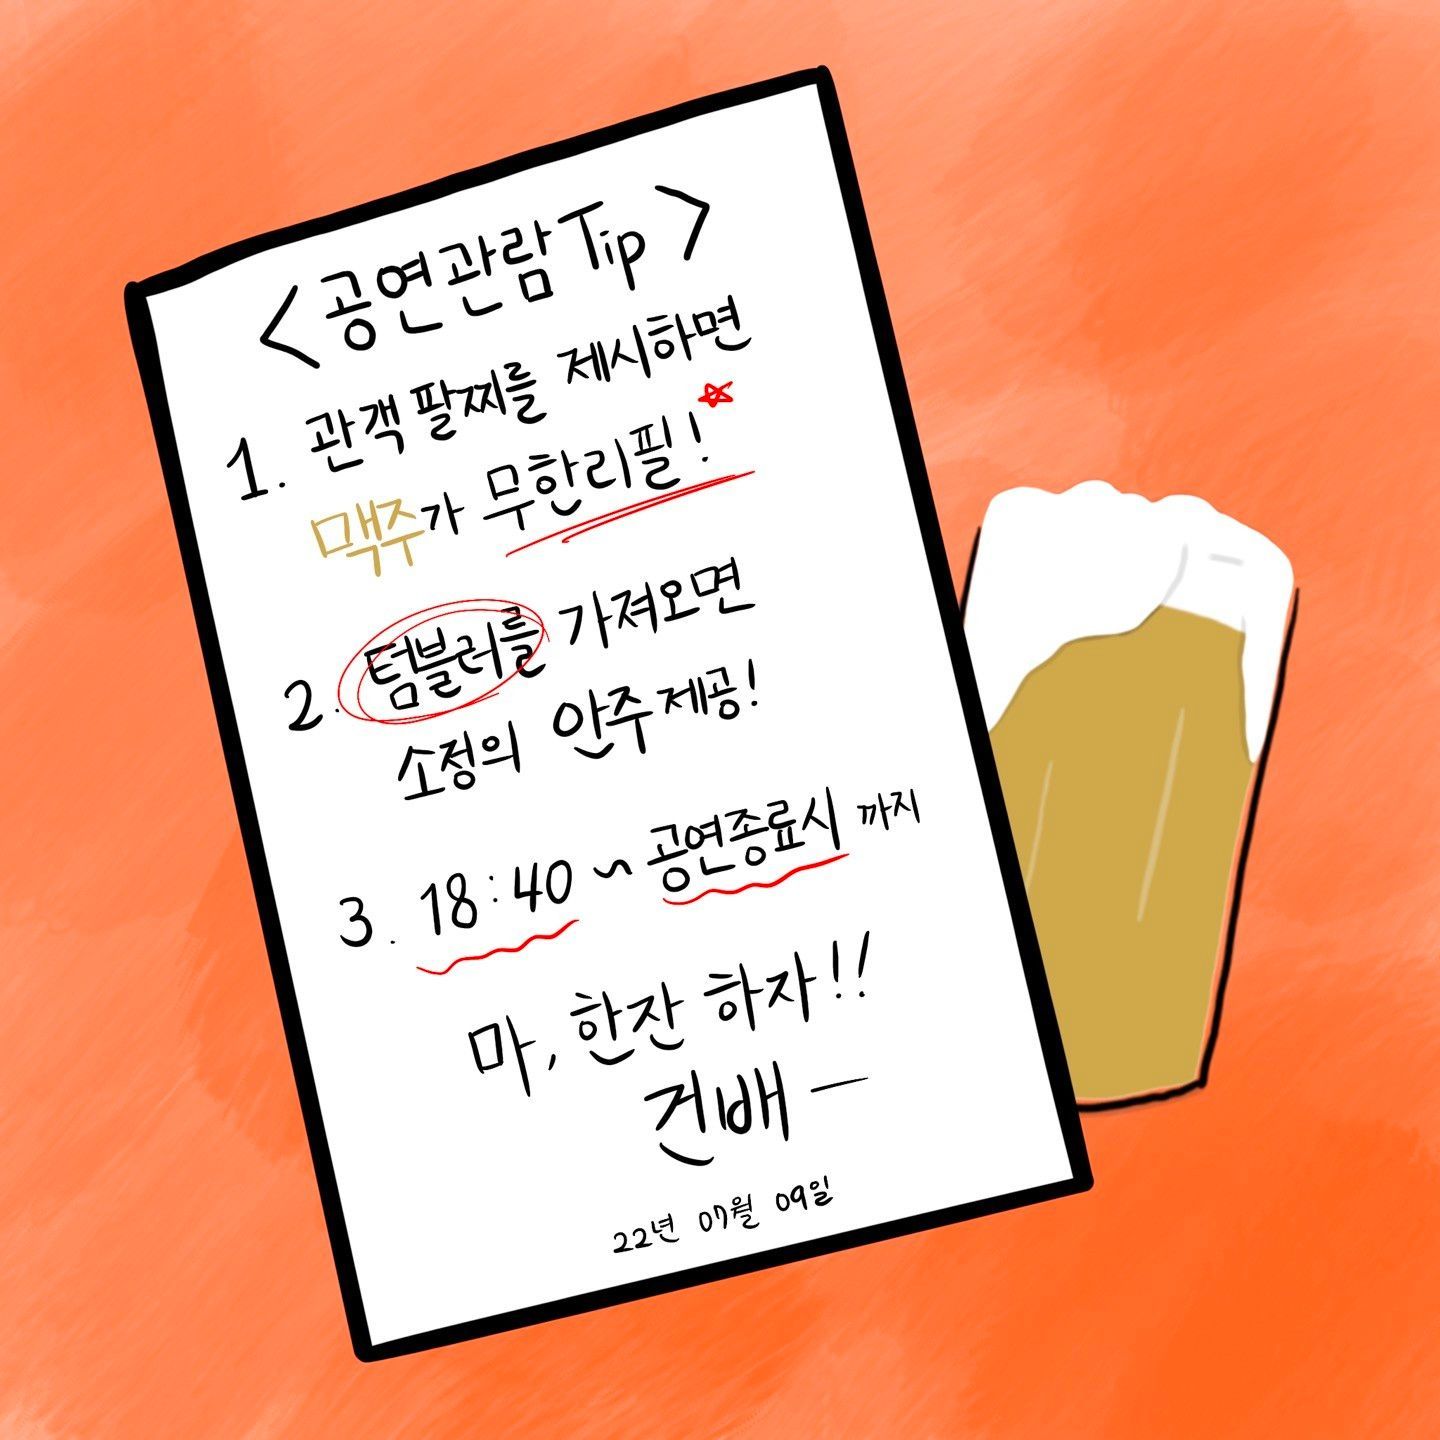 <공연관람 Tip>
1. 관객 팔찌를 제시하면
맥주가 무한리필!
2. 텀블러를 가져오면
소정의 안주 제공!
3. 18:40 ~ 공연종료시 까지
마, 한잔 하자!!
건배 —
22년 07월 09일